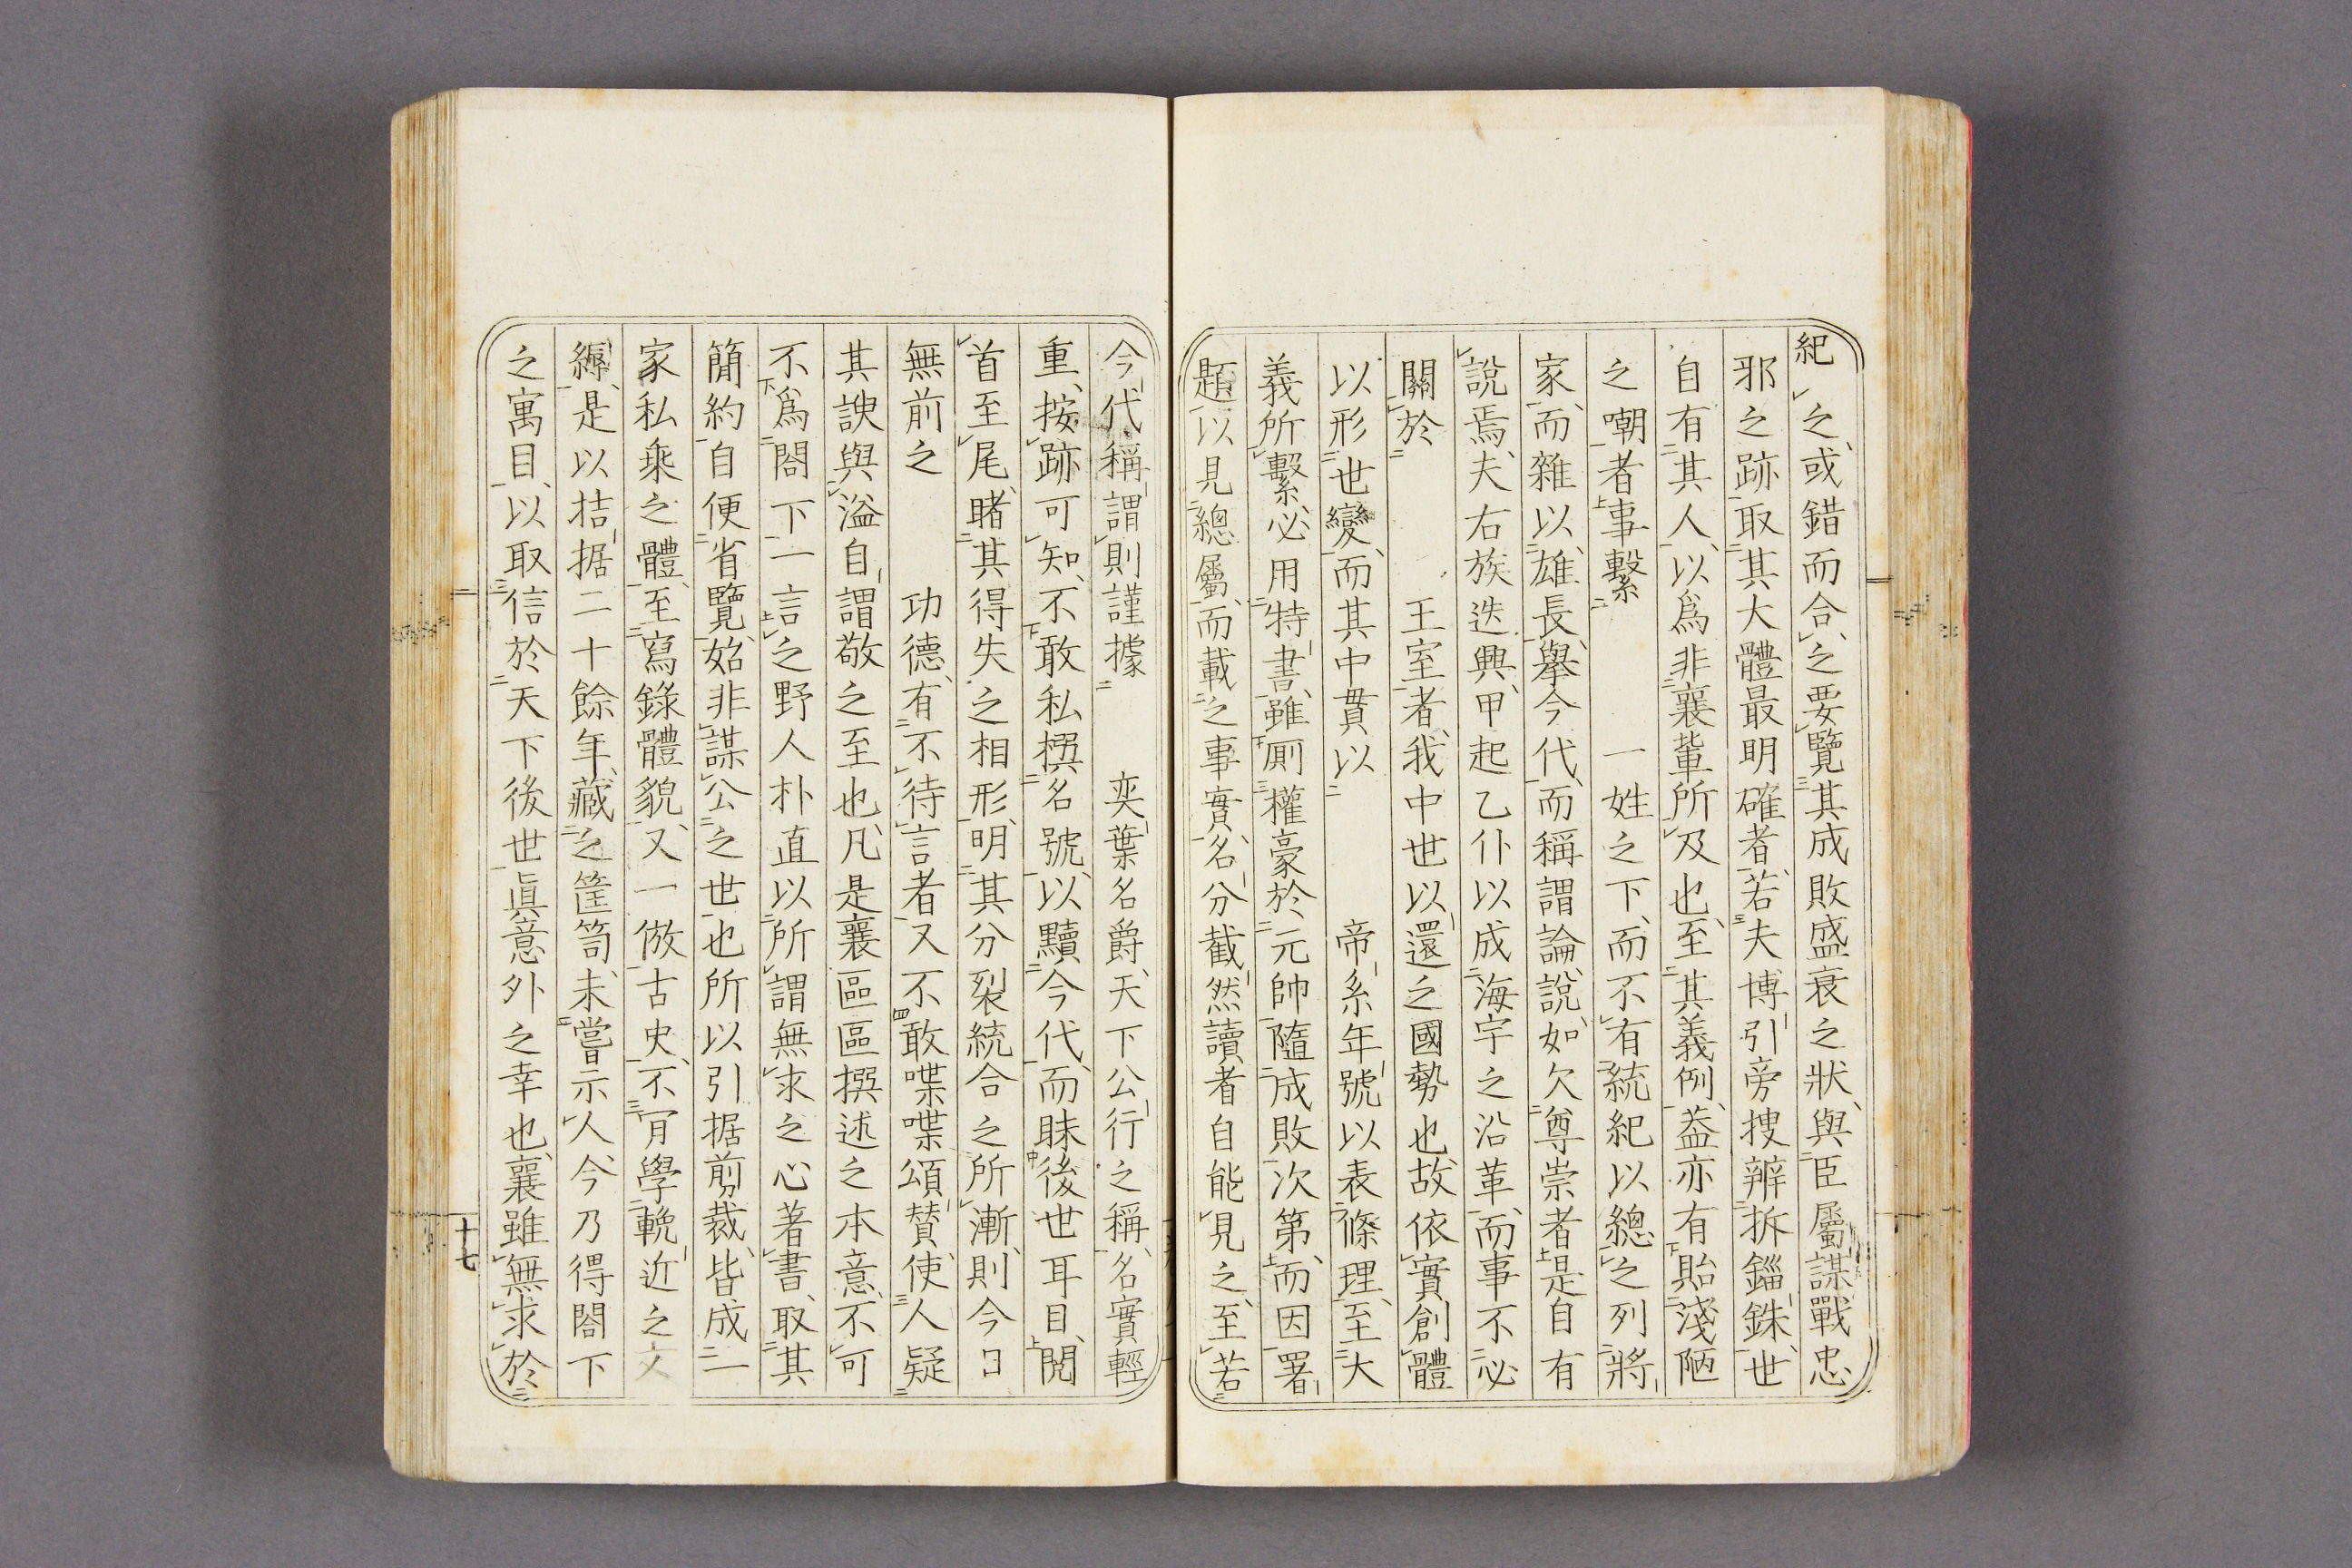 紀之或錯而合之要覽其成敗盛衰之狀與臣屬謀戰忠
邪之跡取其大體最明確者若夫博引旁搜辨拆錙銖世
自有其人以爲非襄輩所及也至其義例葢亦有貽淺陋
之嘲者事繫　一姓之下而不有統紀以總之列將
家而雜以雄長擧今代而稱謂論說如欠尊崇者是自有
說焉夫右族迭興甲起乙仆以成海宇之沿革而事不必
關於　王室者我中世以還之國勢也故依實創體
以形世變而其中貫以　帝系年號以表條理至大
義所繫必用特書雖厠權豪於元帥隨成敗次第而因署
題以見總屬而載之事實名分截然讀者自能見之至若
今代稱謂則謹據　奕葉名爵天下公行之稱名實輕
重按跡可知不敢私撰名號以黷今代而眛後世耳目閱
首至尾睹其得失之相形明其分裂統合之所漸則今日
無前之　功德有不待言者又不敢喋喋頌贊使人疑
其諛與溢自謂敬之至也凡是襄區區撰述之本意不可
不爲閤下一言之野人朴直以所謂無求之心著書取其
簡約自便省覽始非謀公之世也所以引据剪裁皆成一
家私乘之體至寫錄體貌又一倣古史不肎學輓近之文
縟是以拮据二十餘年藏之筐笥未嘗示人今乃得閤下
之寓目以取信於天下後世眞意外之幸也襄雖無求於
十七